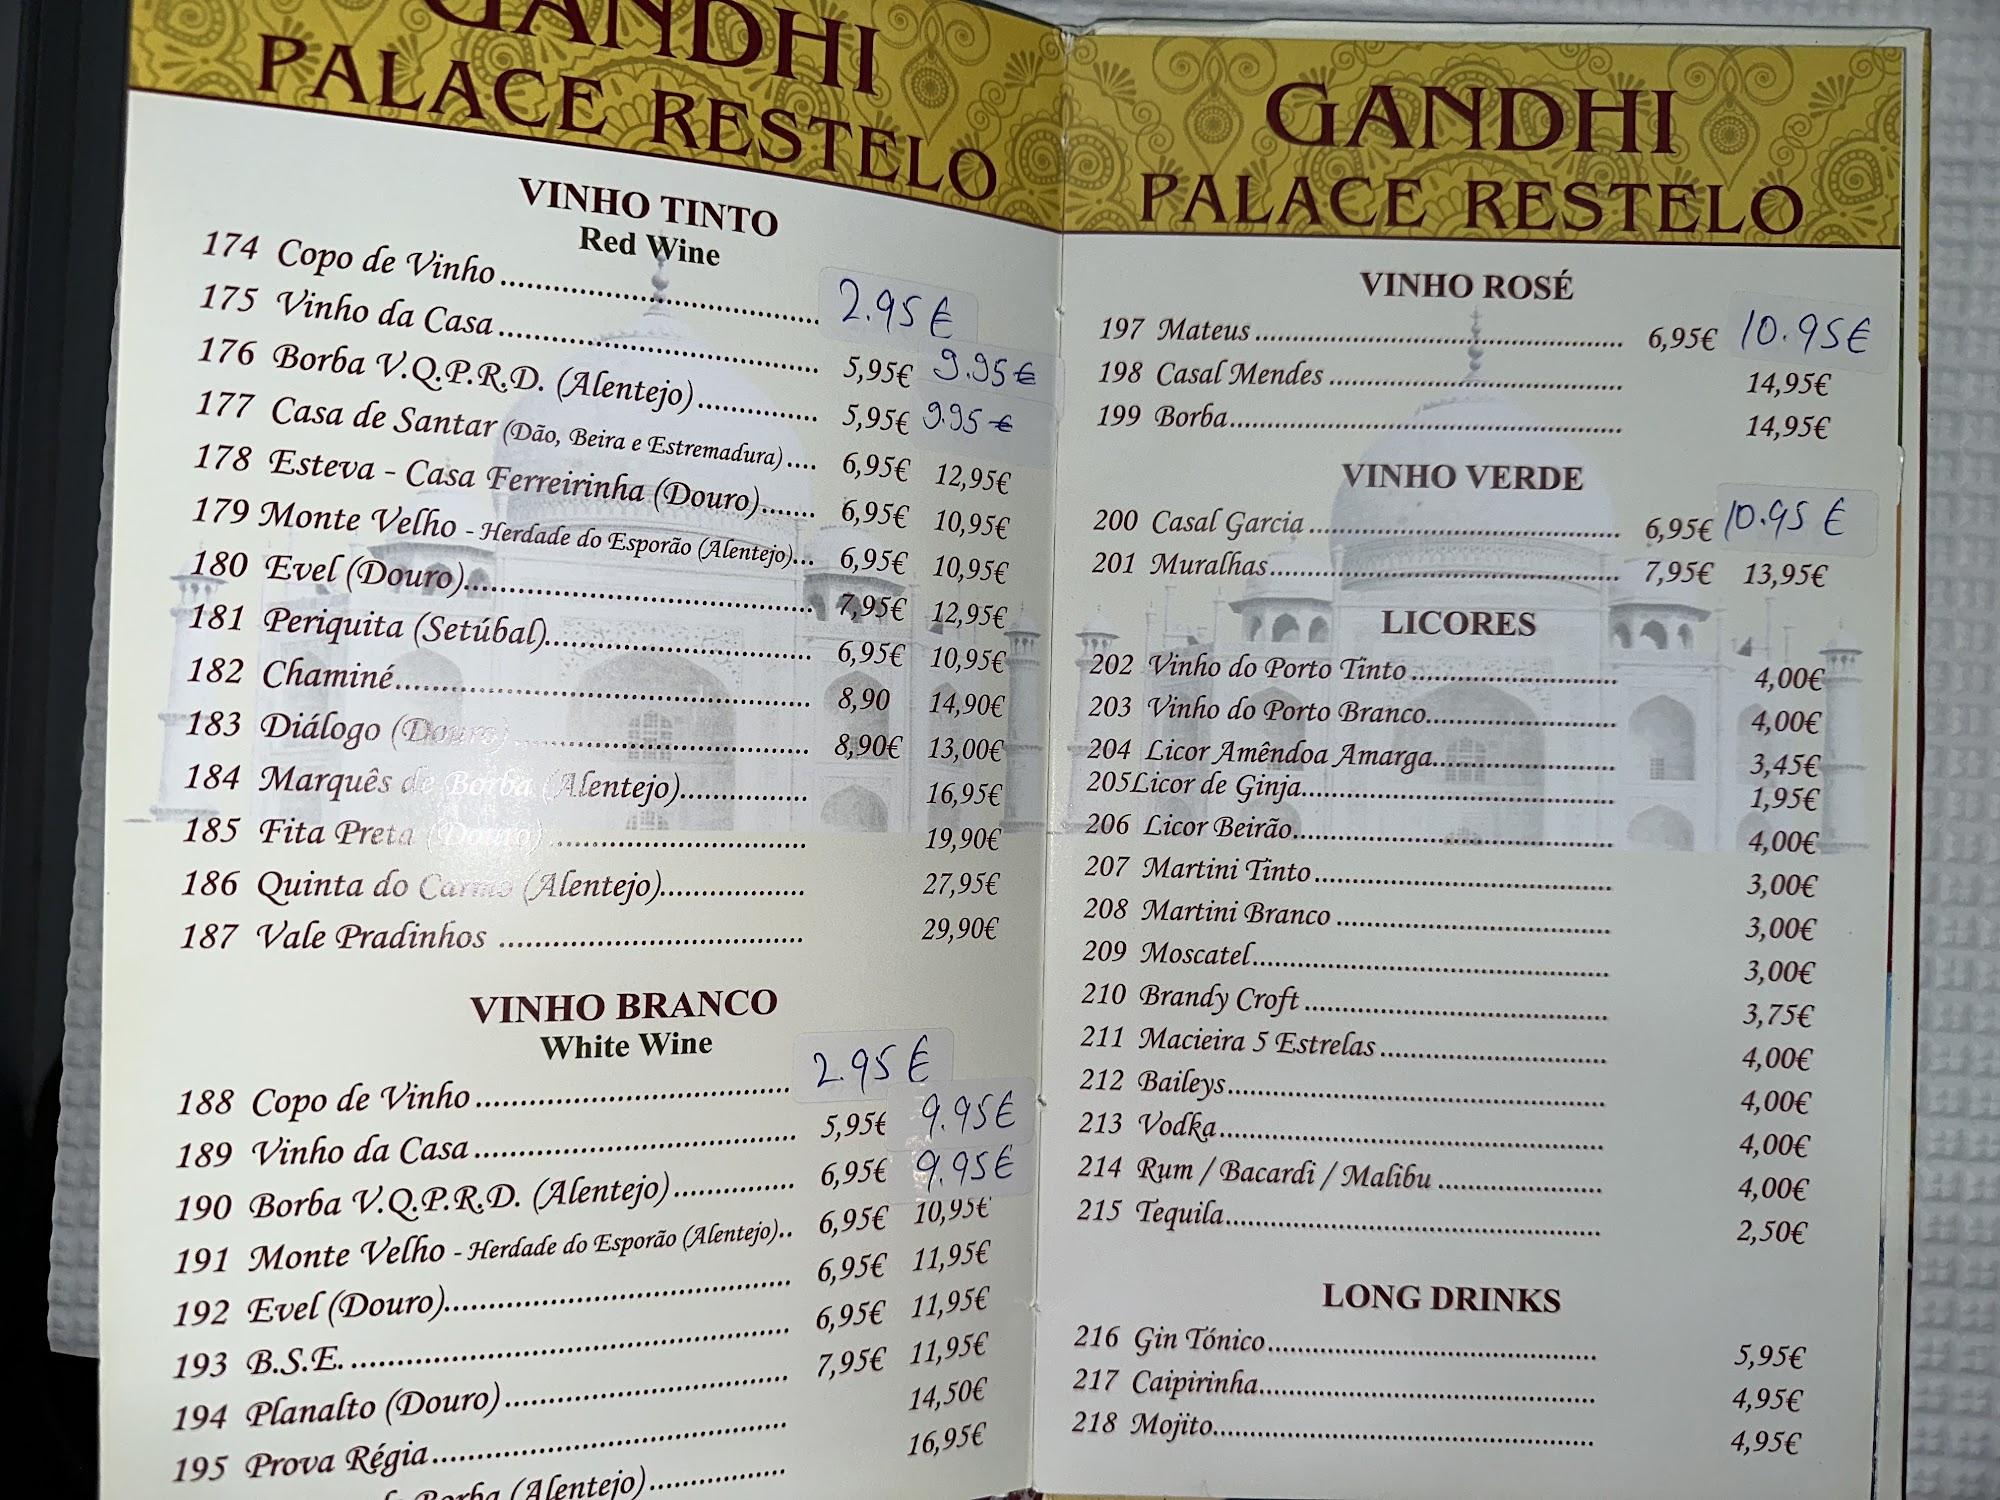 GANDHI
PALACE RESTELO
VINHO TINTO
Red Wine
174 Copo de Vinho 2.95€
175 Vinho da Casa 5,95€ 9.95€
176 Borba V.Q.P.R.D. (Alentejo) 5,95€ 9.95€
177 Casa de Santar (Dão, Beira e Estremadura) 6,95€ 12,95€
178 Esteva - Casa Ferreirinha (Douro) 6,95€ 10,95€
179 Monte Velho - Herdade do Esporão (Alentejo) 6,95€ 10,95€
180 Evel (Douro) 7,95€ 12,95€
181 Periquita (Setúbal) 6,95€ 10,95€
182 Chaminé 8,90 14,90€
183 Diálogo (Douro) 8,90€ 13,00€
184 Marquês de Borba (Alentejo) 16,95€
185 Fita Preta (Douro) 19,90€
186 Quinta do Carmo (Alentejo) 27,95€
187 Vale Pradinhos 29,90€
VINHO BRANCO
White Wine
188 Copo de Vinho 2.95€
189 Vinho da Casa 5,95€ 9.95€
190 Borba V.Q.P.R.D. (Alentejo) 6,95€ 9.95€
191 Monte Velho - Herdade do Esporão (Alentejo) 6,95€ 10,95€
192 Evel (Douro) 6,95€ 11,95€
193 B.S.E. 6,95€ 11,95€
194 Planalto (Douro) 7,95€ 11,95€
195 Prova Régia 14,50€
Borba (Alentejo) 16,95€
GANDHI
PALACE RESTELO
VINHO ROSÉ
197 Mateus 6,95€ 10.95€
198 Casal Mendes 14,95€
199 Borba 14,95€
VINHO VERDE
200 Casal Garcia 6,95€ 10.95€
201 Muralhas 7,95€ 13,95€
LICORES
202 Vinho do Porto Tinto 4,00€
203 Vinho do Porto Branco 4,00€
204 Licor Amêndoa Amarga 3,45€
205Licor de Ginja 1,95€
206 Licor Beirão 4,00€
207 Martini Tinto 3,00€
208 Martini Branco 3,00€
209 Moscatel 3,00€
210 Brandy Croft 3,75€
211 Macieira 5 Estrelas 4,00€
212 Baileys 4,00€
213 Vodka 4,00€
214 Rum / Bacardi / Malibu 4,00€
215 Tequila 2,50€
LONG DRINKS
216 Gin Tónico 5,95€
217 Caipirinha 4,95€
218 Mojito 4,95€